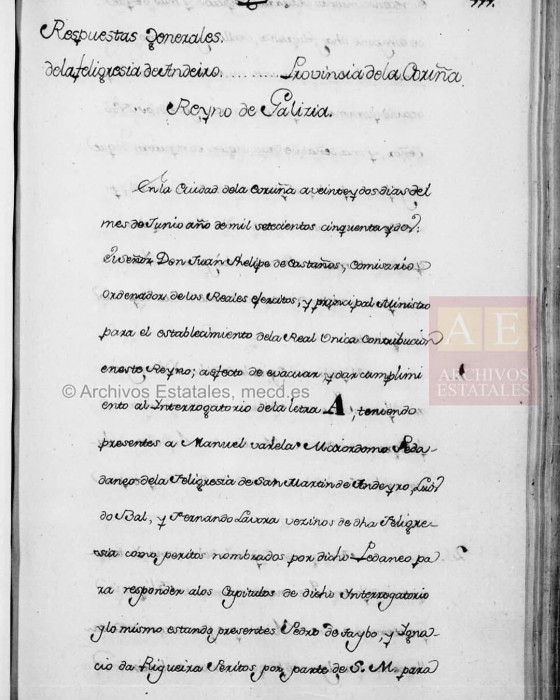 Respuestas Generales.
dela feligresia de Andeiro. . . . . . . . Provinsia dela Coruña.
Reyno de Galizia.
En la Ciudad dela Coruña a veinte y dos dias del
mes de Junio año de mil setecientos cinquenta y dos.
el señor Don Juan Phelipe de Castaños, Comisario
ordenador de los Reales exercitos, y principal Ministro
para el establecimiento dela Real Unica Contribucion
en este Reyno; a efecto de evacuar y dar cumplimi
ento al Interrogatorio dela letra A, teniendo
presentes a Manuel varela Maiordomo Peda-
daneo dela Feligresia de San Martin de Andeyro,
do Bal, y Fernando vezinos de dha Feligre-
sia como peritos nombrados por dicho Pedaneo pa
ra responder alos Capitulos de dicho Interrogatorio
y lo mismo estando presentes Pedro de Saybo, y Igna-
cio da Rigueira Peritos por parte de S. M. para
© Archivos Estatales, mecd.es
AE
ARCHIVOS
ESTATALES